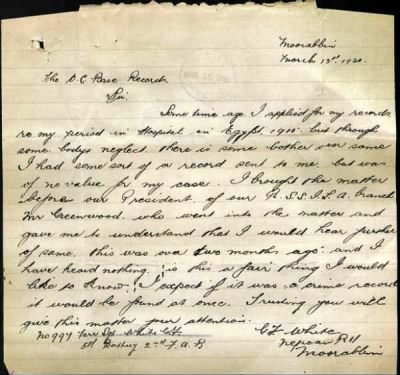 Moorabbin
March 13th 1920.
The O.C Base Records.
Sir.
Some time ago I applied for my records
re my period in Hospital in Egypt, 1915. but though
some bodys neglect there is some bother over same
I had some sort of a record sent to me, but was
of no value for my case. I brought the matter
before our President of our R.S.S.I.L.A. branch
Mr Greenwood, who went into the matter and
gave me to understand that I would hear further
of same. this was over two months ago, and I
have heard nothing, is this a fair thing I would
like to know. I expect if it was a crime record
it would be found at once. Trusting you will
give this matter your attention.
No 997 Farr Sgt White C.F.
5th Battery 2nd F.A.B
C F White
Nepean Rd
Moorabbin